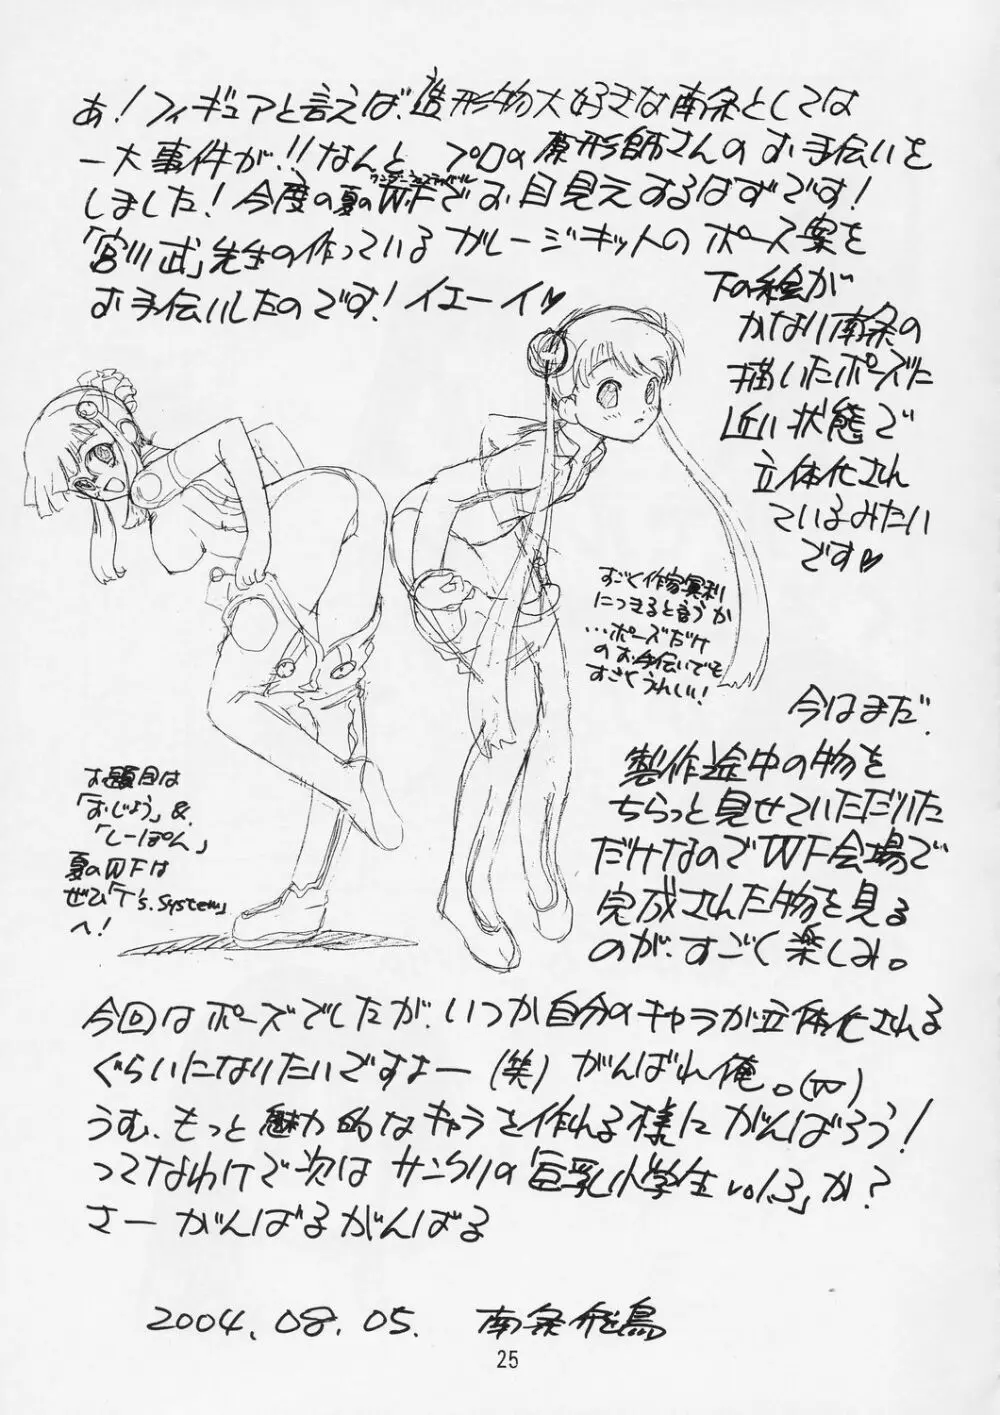 あ！フィギュアと言えば、造形物大好きな南条としては
一大事件が！！なんと、プロの原形師さんのお手伝いを
しました！今度の夏のWFでお目見えするはずです！
ワンダーフェスティバル
「宮川武」先生の作っているガレージキットのポーズ案を
お手伝いしたのです！イエーイ♡
下の絵が
かなり南条の
描いたポーズに
近い状態で
立体化され
ているみたい
です♡
すごく作家冥利
につきると言うか
…ポーズだけ
のお手伝いでも
すごくうれしい！
お題目は
「おじょう」&
「しーぽん」
夏のWFは
ぜひ「T's.system」
へ！
今はまだ、
製作途中の物を
ちらっと見せていただいた
だけなのでWF会場で
完成された物を見る
のが、すごく楽しみ。
今回はポーズでしたが、いつか自分のキャラが立体化される
ぐらいになりたいですよー（笑）がんばれ俺。(w)
うむ、もっと魅力的なキャラを作れる様にがんばろう！
ってなわけで次はサンクリの「巨乳小学生vol.3」か？
さーがんばるがんばる
2004.08.05. 南条飛鳥
25